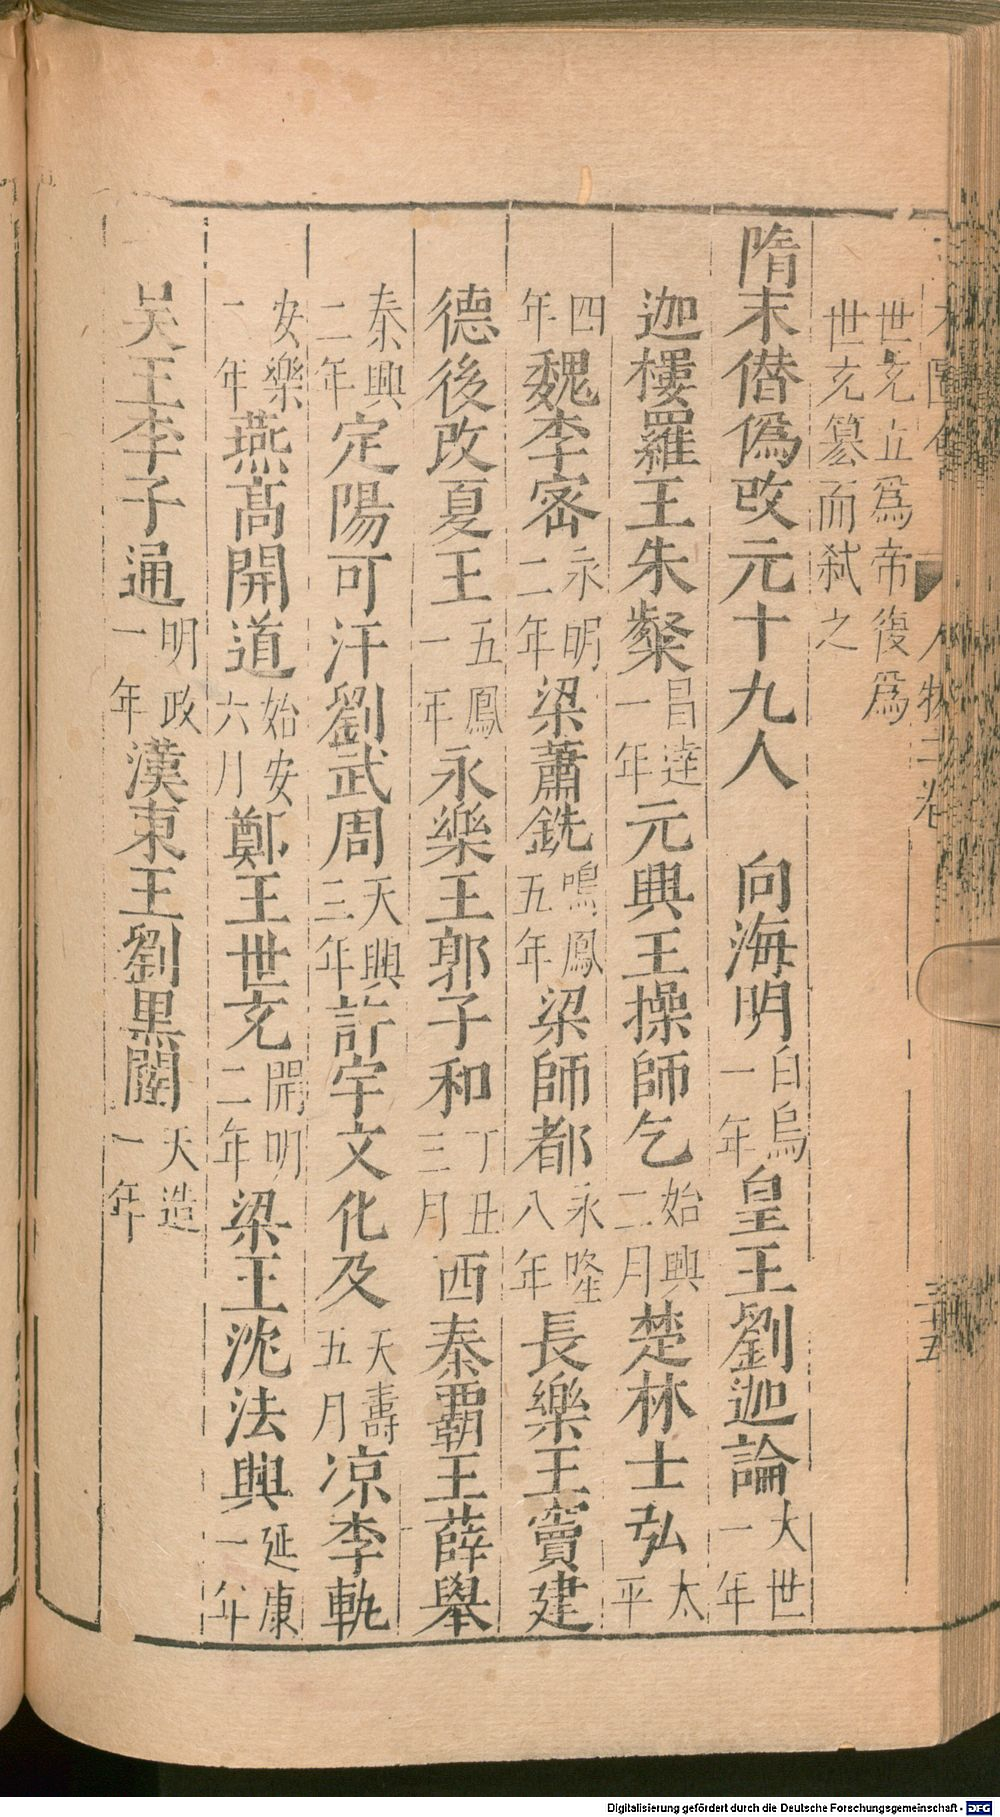 世充立爲帝復爲
世充篡而弑之
隋末僣偽改元十九人　向海明白烏一年皇王劉迦論大世一年
迦樓羅王朱粲昌達一年元興王操師乞始興二月楚林士弘太平
四年魏李密永明二年梁蕭銑鳴鳳五年梁師都永隆八年長樂王竇建
德後改夏王五鳳一年永樂王郭子和丁丑三月西秦覇王薛舉
秦興二年定陽可汗劉武周天興三年許宇文化及天壽五月凉李軌
安樂一年燕髙開道始安六月鄭王世充開明二年梁王沈法興延康一年
吴王李子通明政一年漢東王劉黑闥天造一年
人物二卷
三十五
Digitalisierung gefördert durch die Deutsche Forschungsgemeinschaft - DFG